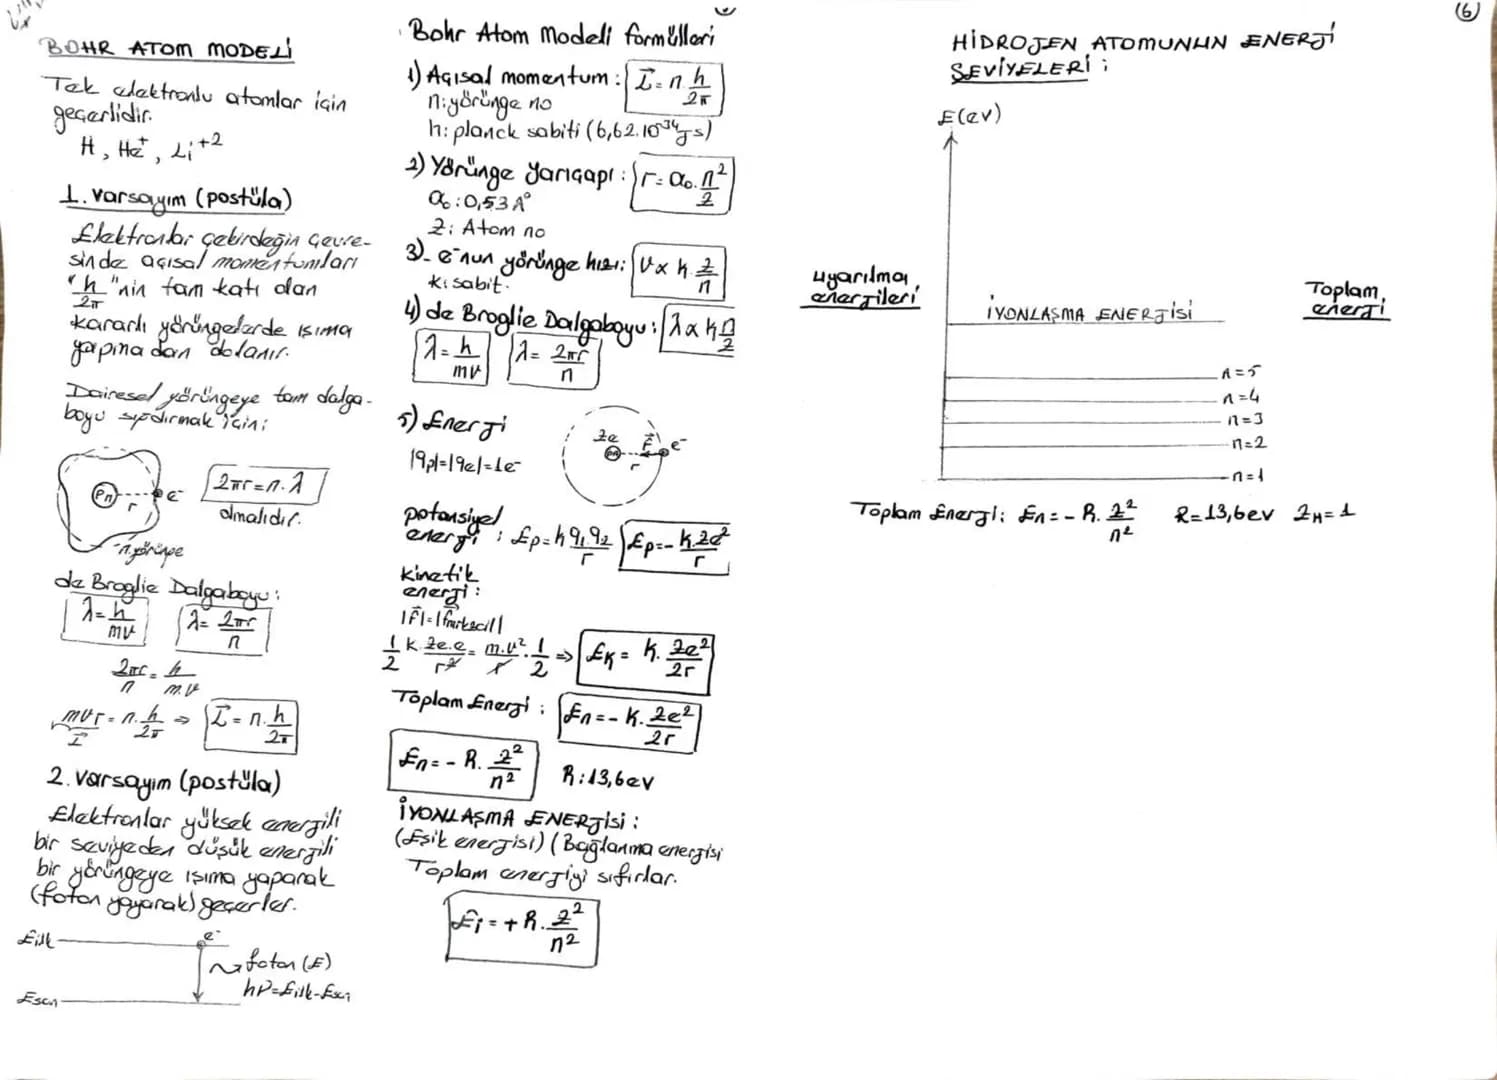 BOHR ATOM MODELİ
Tek elektronlu atomlar için
geçerlidir.
H, He⁺, Li⁺²
1. varsayım (postüla)
Elektronlar çekirdeğin çevre-
sinde açısal momentumları
"h/2π"nin tam katı olan
kararlı yörüngelerde ışıma
yapmadan dolanır.
Dairesel yörüngeye tam dalga-
boyu sığdırmak için;
Pn r e⁻
2πr=n.λ
olmalıdır.
n.yörünge
de Broglie Dalgaboyu:
λ=h/mv λ=2πr/n
2πr/n = h/m.v
mvr = n.h/2π ⇒ L = n.h/2π
L
2. varsayım (postüla)
Elektronlar yüksek enerjili
bir seviyeden düşük enerjili
bir yörüngeye ışıma yaparak
(foton yayarak) geçerler.
Eilk e⁻
foton (E)
hν=Eilk-Eson
Eson
Bohr Atom Modeli formülleri
1) Açısal momentum: L=n.h/2π
n:yörünge no
h: planck sabiti (6,62.10⁻³⁴Js)
2) Yörünge Yarıçapı: r=a₀.n²/z
a₀:0,53A°
z: Atom no
3) e⁻nun yörünge hızı: v∝k.z/n
k:sabit.
4) de Broglie Dalgaboyu: λ∝k n/z
λ=h/mv λ=2πr/n
5) Enerji
|qp|=|qe|=1e⁻
ze F e⁻
r
potansiyel
enerji : Ep=k q₁.q₂/r Ep=-k.ze²/r
kinetik
enerji:
|F|=|Fmerkezcil|
1/2 k.ze.e/r² = m.v²/r.1/2 ⇒ EK = k.ze²/2r
Toplam Enerji: En=-k.ze²/2r
En=-R.z²/n² R:13,6ev
İYONLAŞMA ENERJİSİ:
(Eşik enerjisi) (Bağlanma enerjisi
Toplam enerjiyi sıfırlar.
Ei=+R.z²/n²
(6)
HİDROJEN ATOMUNUN ENERJİ
SEVİYELERİ:
E(ev)
uyarılma
enerjileri
İYONLAŞMA ENERJİSİ
Toplam
enerji
n=5
n=4
n=3
n=2
n=1
Toplam Enerji: En=-R.z²/n² R=13,6ev zH=1